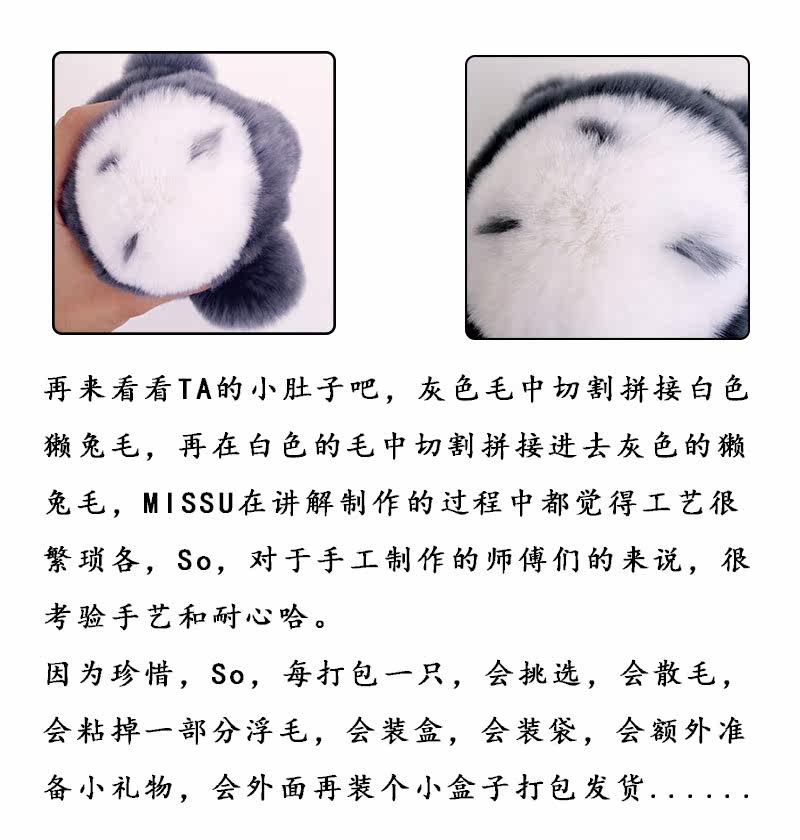 再来看看TA的小肚子吧，灰色毛中切割拼接白色
獭兔毛，再在白色的毛中切割拼接进去灰色的獭
兔毛，MISSU在讲解制作的过程中都觉得工艺很
繁琐各，So，对于手工制作的师傅们的来说，很
考验手艺和耐心哈。
因为珍惜，So，每打包一只，会挑选，会散毛，
会粘掉一部分浮毛，会装盒，会装袋，会额外准
备小礼物，会外面再装个小盒子打包发货......